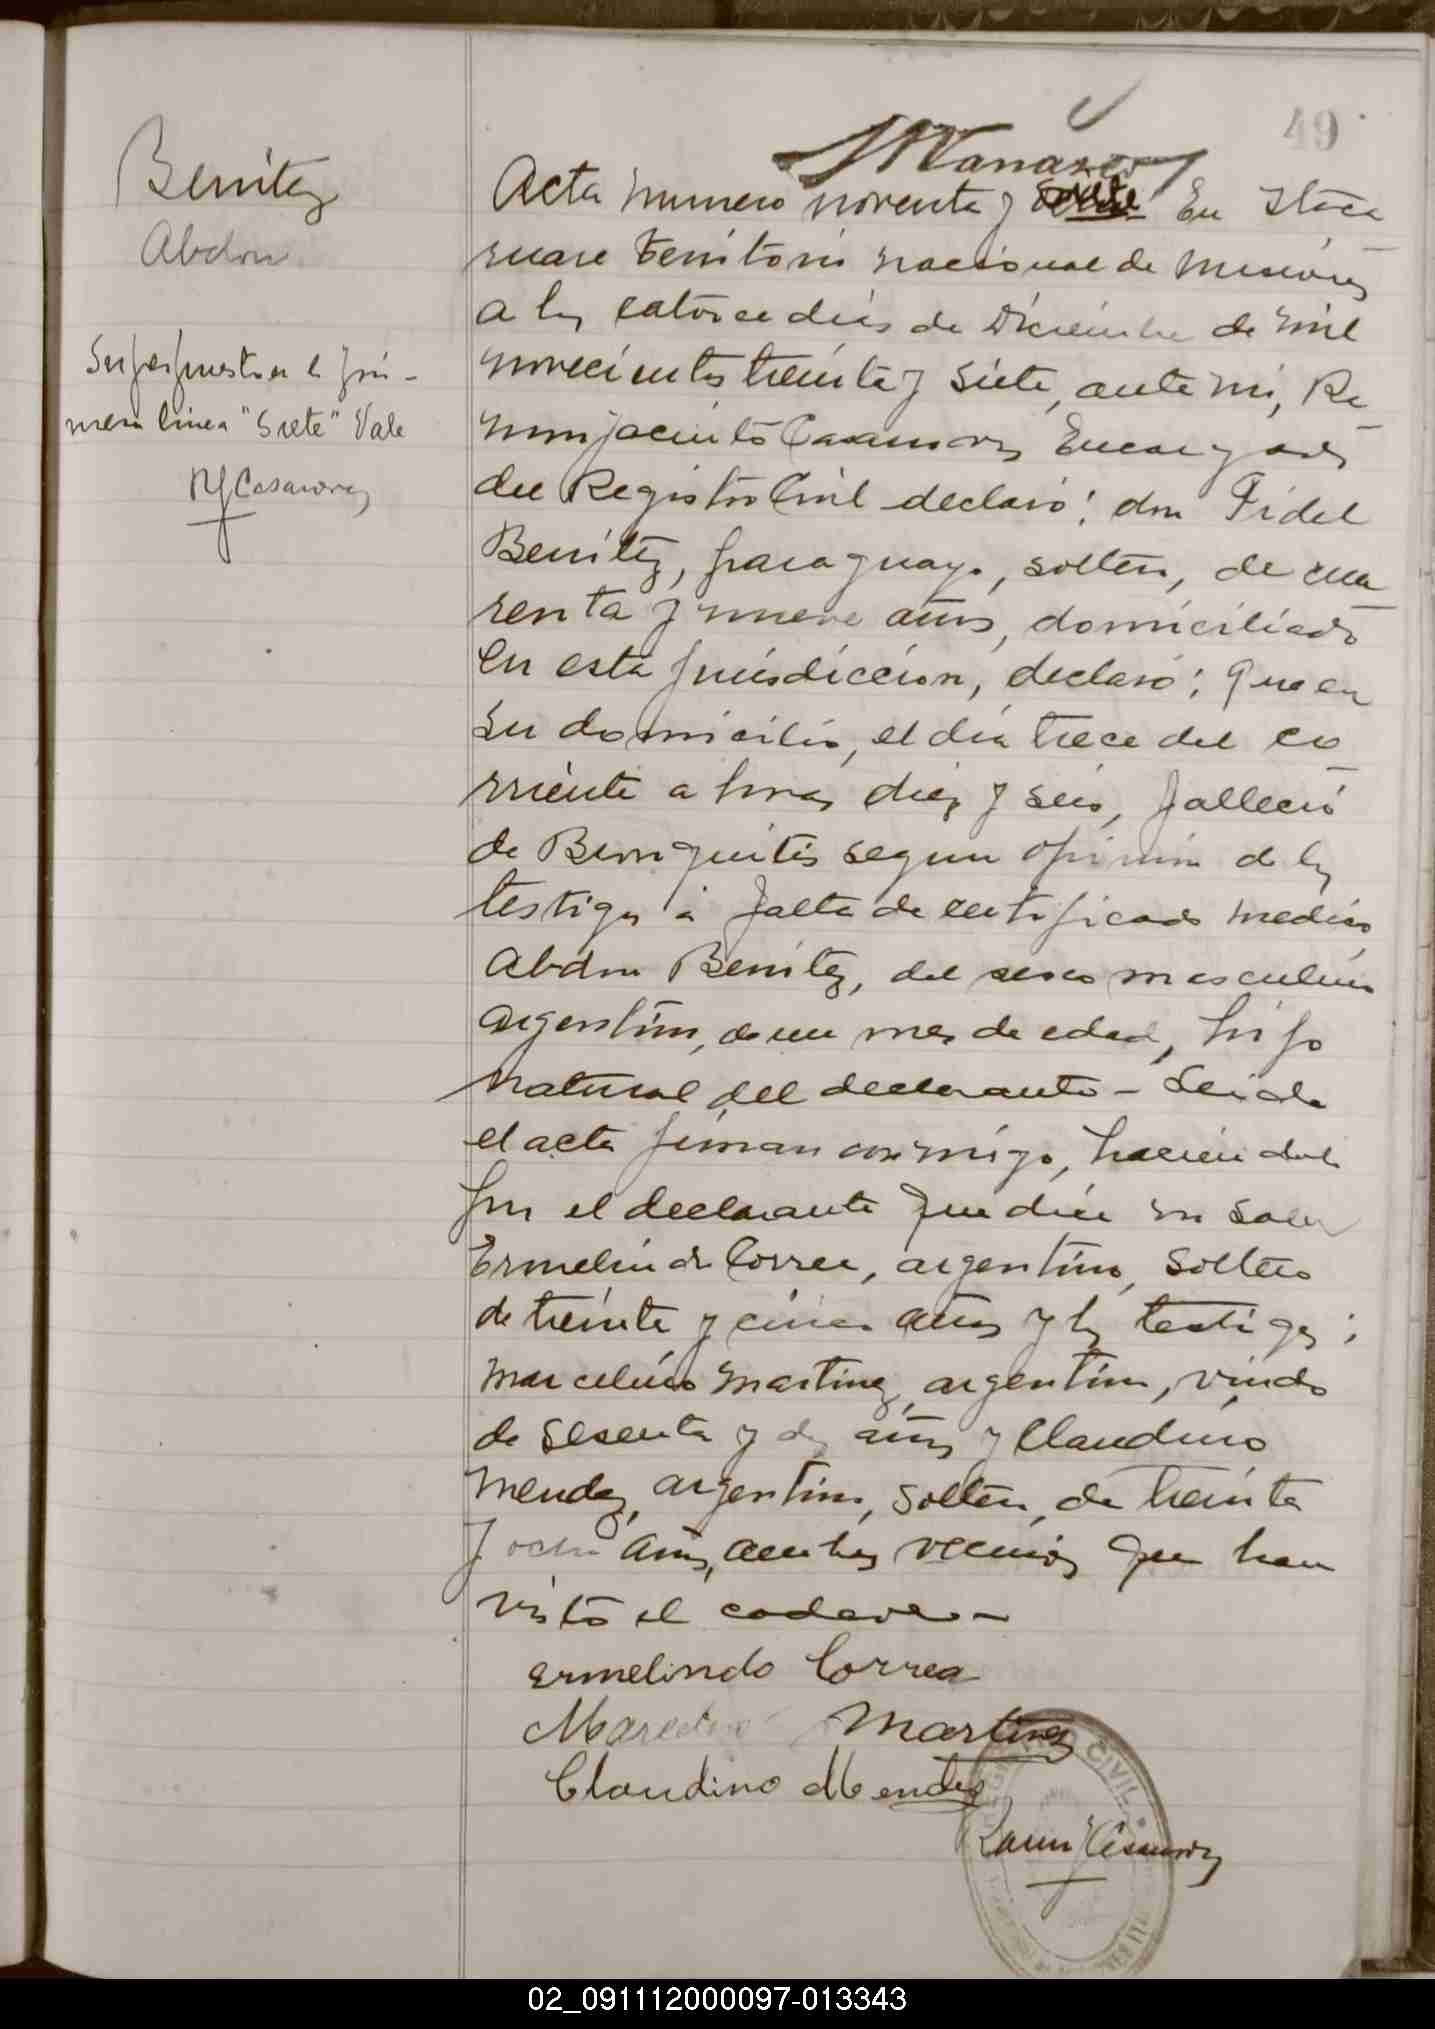 49
Benitez
Abdon
Superpuesto en la pri-
mera linea "Siete" Vale
RJCasanovas
Acta numero noventa y siete En Itaca
ruare territorio nacional de Misiones
a los catorce dias de Diciembre de mil
novecientos treinta y siete, ante mi, Ra
mon Jacinto Casanovas Encargado
del Registro Civil declaró: don Fidel
Benitez, paraguayo, soltero, de cua
renta y nueve años, domiciliado
en esta jurisdiccion, declaró; que en
su domicilio, el dia trece del co
rriente a horas diez y seis, falleció
de Bronquitis segun opinion de los
testigos á falta de certificado medico
Abdon Benitez, del sexo masculino
argentino, de un mes de edad, hijo
natural del declarante - Leida
el acta firman conmigo, haciendolo
por el declarante que dice no saber
Ermelindo Correa, argentino, soltero
de treinta y cinco años y los testigos;
Marcelino Martinez, argentino, viudo
de sesenta y dos años y Claudino
Mendez, argentino, soltero, de treinta
y ocho años, ambos vecinos que han
visto el cadaver -
Ermelindo Correa
Marcelino Martinez
Claudino Mendez
Ramon JCasanovas
REGISTRO CIVIL
02_091112000097-013343